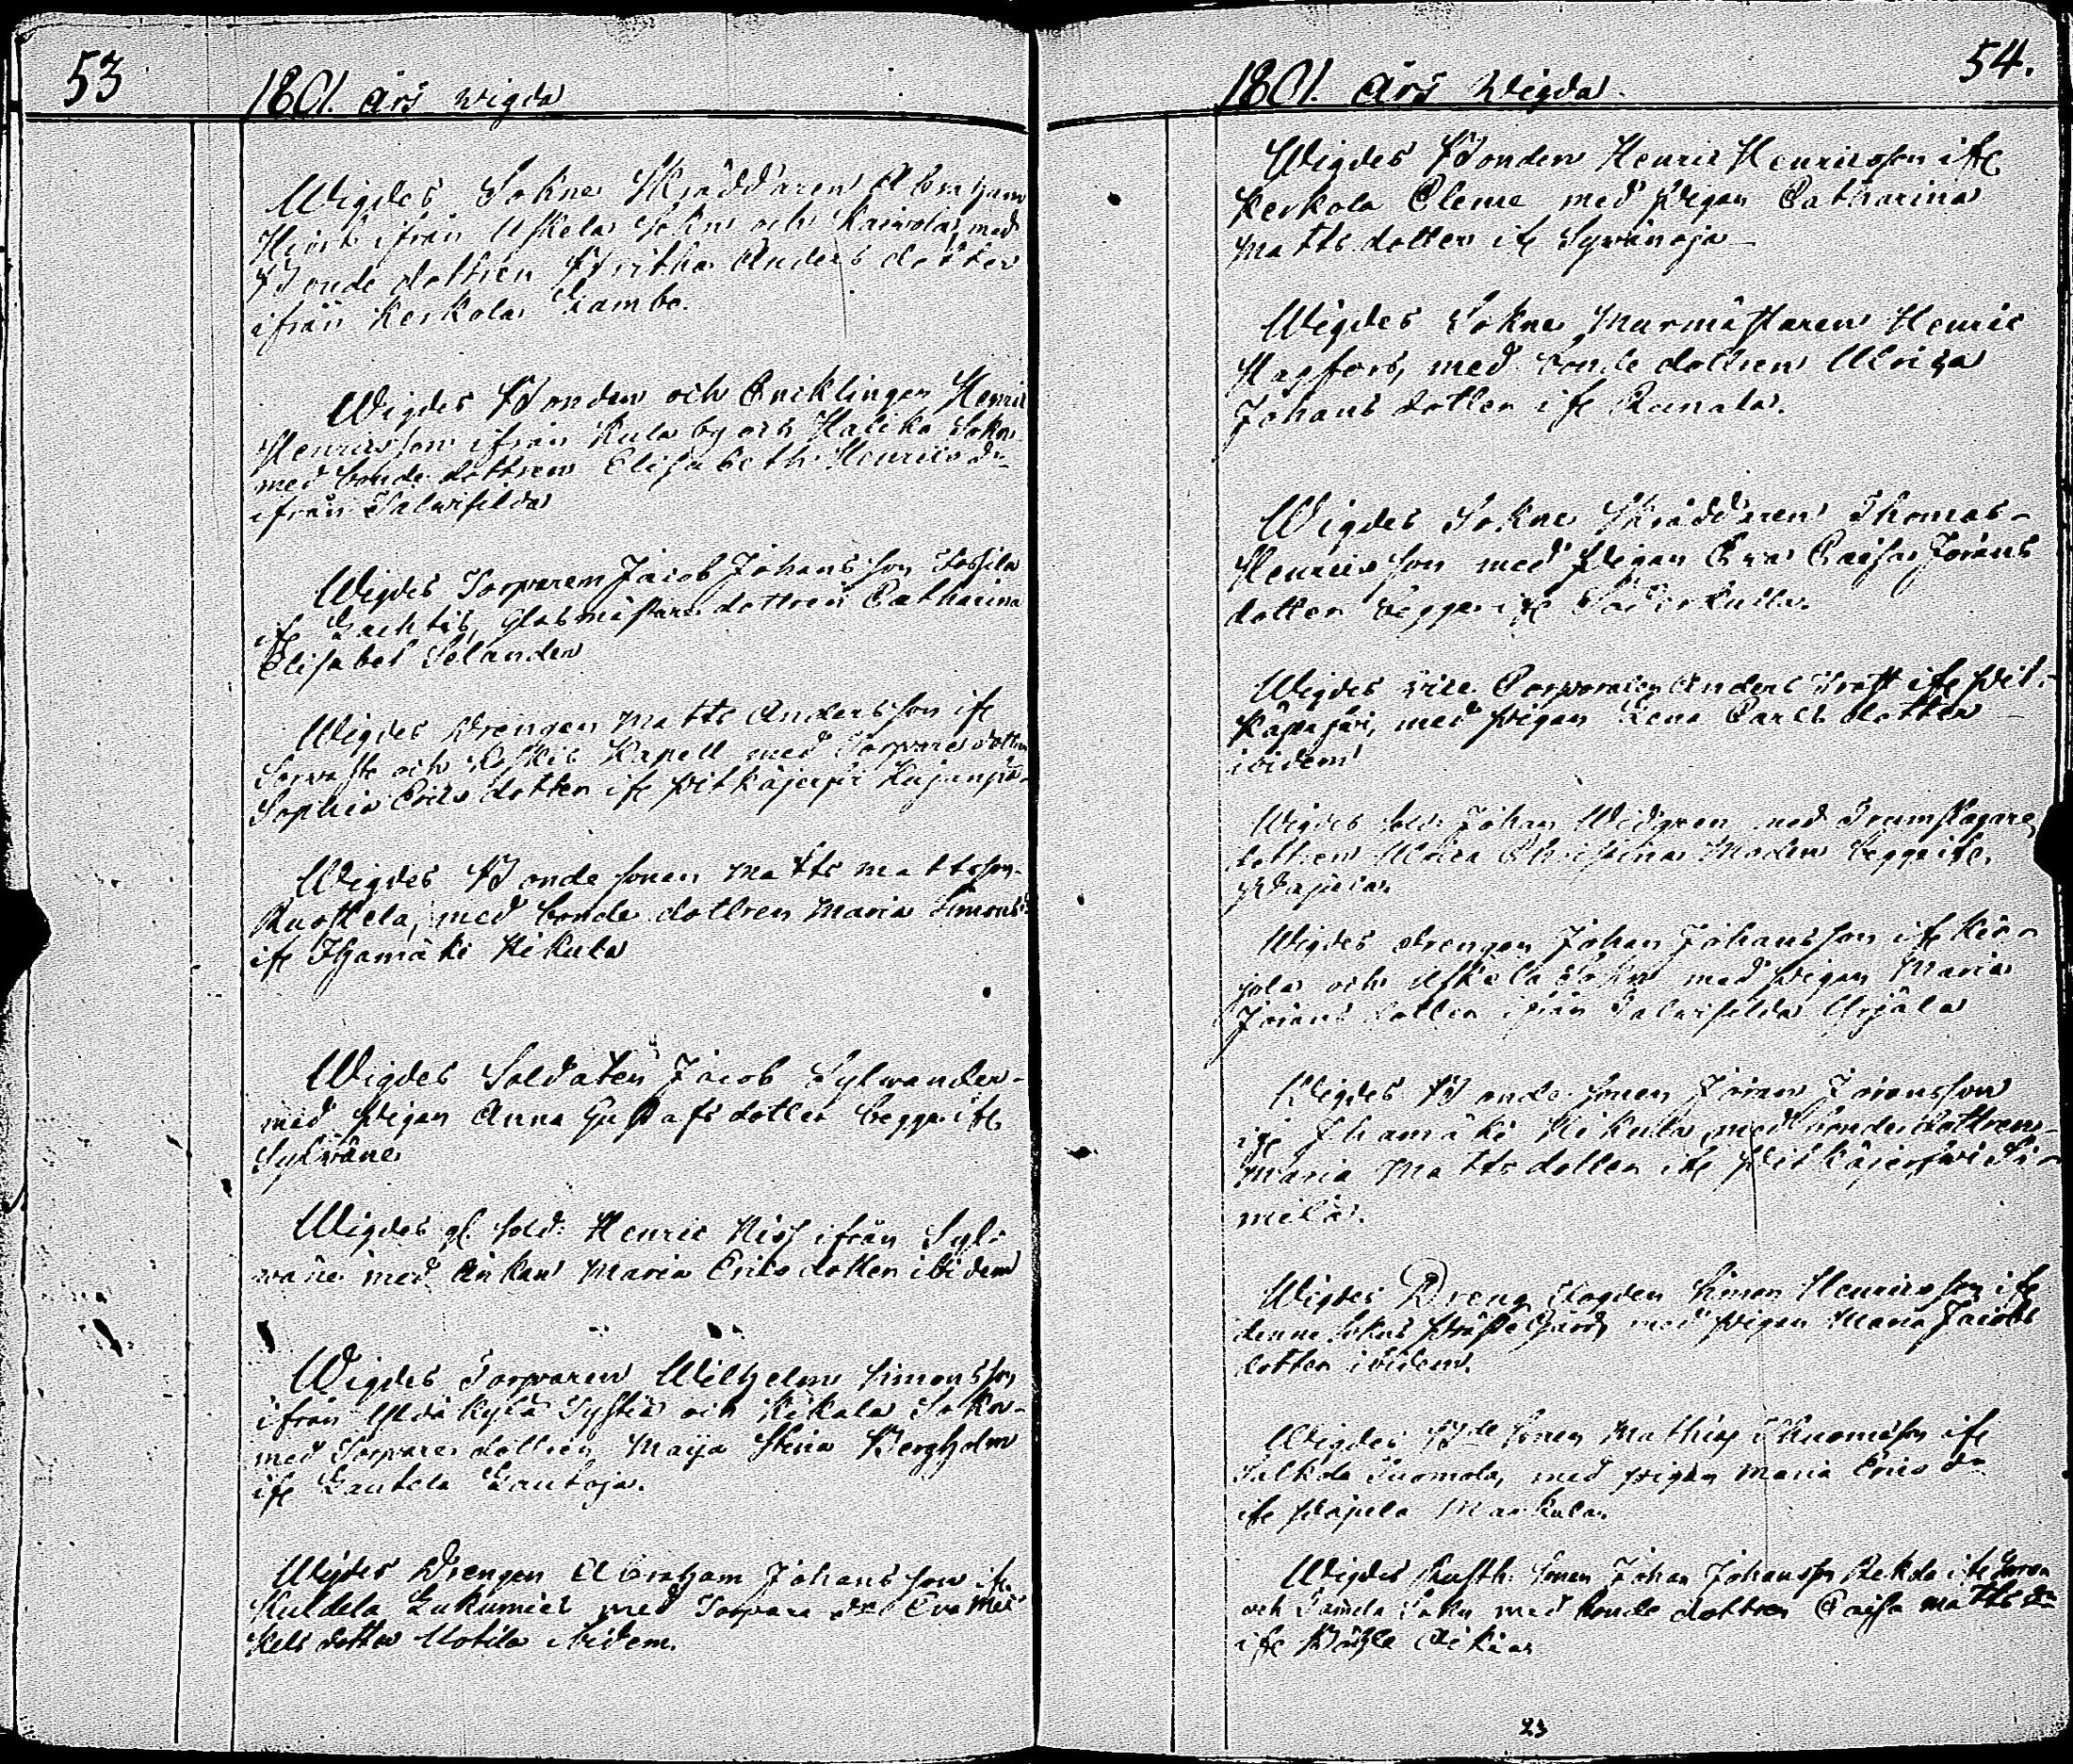 53
1801. års wigda
Wigdes Sokne Skräddaren Abraham
Hiort ifrån Uskela Sokn och Kaivola, med
Bonde dottren Britha Anders dotter
ifrån Kerkola Lambo.
Wigdes Bonden och Encklingen Henric
Henricsson ifrån Kula by och Haliko Sokn
med bonde dottren Elisabeth Henrics dr
ifrån Salwisilda
Wigdes Torparen Jacob Johansson
ifr Lachtis, Glasmästare dottren Catharina
Elisabet Selander
Wigdes Drengen Matts Andersson ifr
Sorvasto och Koskis Kapell med Torpare dottren
Sophia Erics dotter ifr Pitkäjerfvi
Wigdes Bonde sonen Matts Mattsson
Ruostela, med bonde dottren Maria Simons dr
ifr Ihamäki Hikula
Wigdes Soldaten Jacob Sylwander
med Pigan Anna Gustafs dotter begge ifr
Sylwäne
Wigdes gl. sold: Henric Kiss ifrån Syl-
wäne med Änkan Maria Erics dotter ibidem
Wigdes Torparen Wilhelm Simonsson
ifrån Yldäkylä och Kikala Sokn
med Torpare dottren Maija Stina Bergholm
ifr Lautela Lautoja.
Wigdes Drengen Abraham Johansson ifr
Kuldela Lukumies med Torpare dr Eva Mic-
kels dotter Uotila ibidem.
54.
1801. års Wigda.
Wigdes Bonden Henric Henricsson ifr
Kerkola Cleme med Pigan Catharina
Matts dotter ifr Sywänoja
Wigdes Sokne Murmästaren Henric
Hagfors, med bonde dottren Ulrica
Johans dotter ifr
Wigdes Sokne Skräddaren Thomas
Henricsson med Pigan Eva Caisa Jörans
dotter begge ifr
Wigdes vice Corporalen Anders Trast ifr Pit-
käjerfvi, med Pigan Lena Carls dotter
ibidem
Wigdes sold: Johan Widgren med Trumslagare
dottren Ulrica Christina Modén begge ifr
Wigdes drengen Johan Johansson ifr
och Uskela Sokn med Pigan Maria
Jörans dotter ifrån Salwisilda Yrjälä
Wigdes Bonde sonen Jöran Jöransson
ifr Ihamäki Hikula med bonde dottren
Maria Matts dotter ifr Pitkäjerfvi
milä.
Wigdes Dreng Fogden Simon Henricsson ifr
denna Sokns Präste Gård, med Pigan Maria Jacobs
dotter ibidem.
Wigdes Bde sonen Mathias Thomasson ifr
Suomola, med pigan Maria Erics dr
ifr Markula.
Wigdes Rusth. sonen Johan Johansson Rekola ifr
och Sokn med bonde dottren Caisa Matts dr
ifr
23